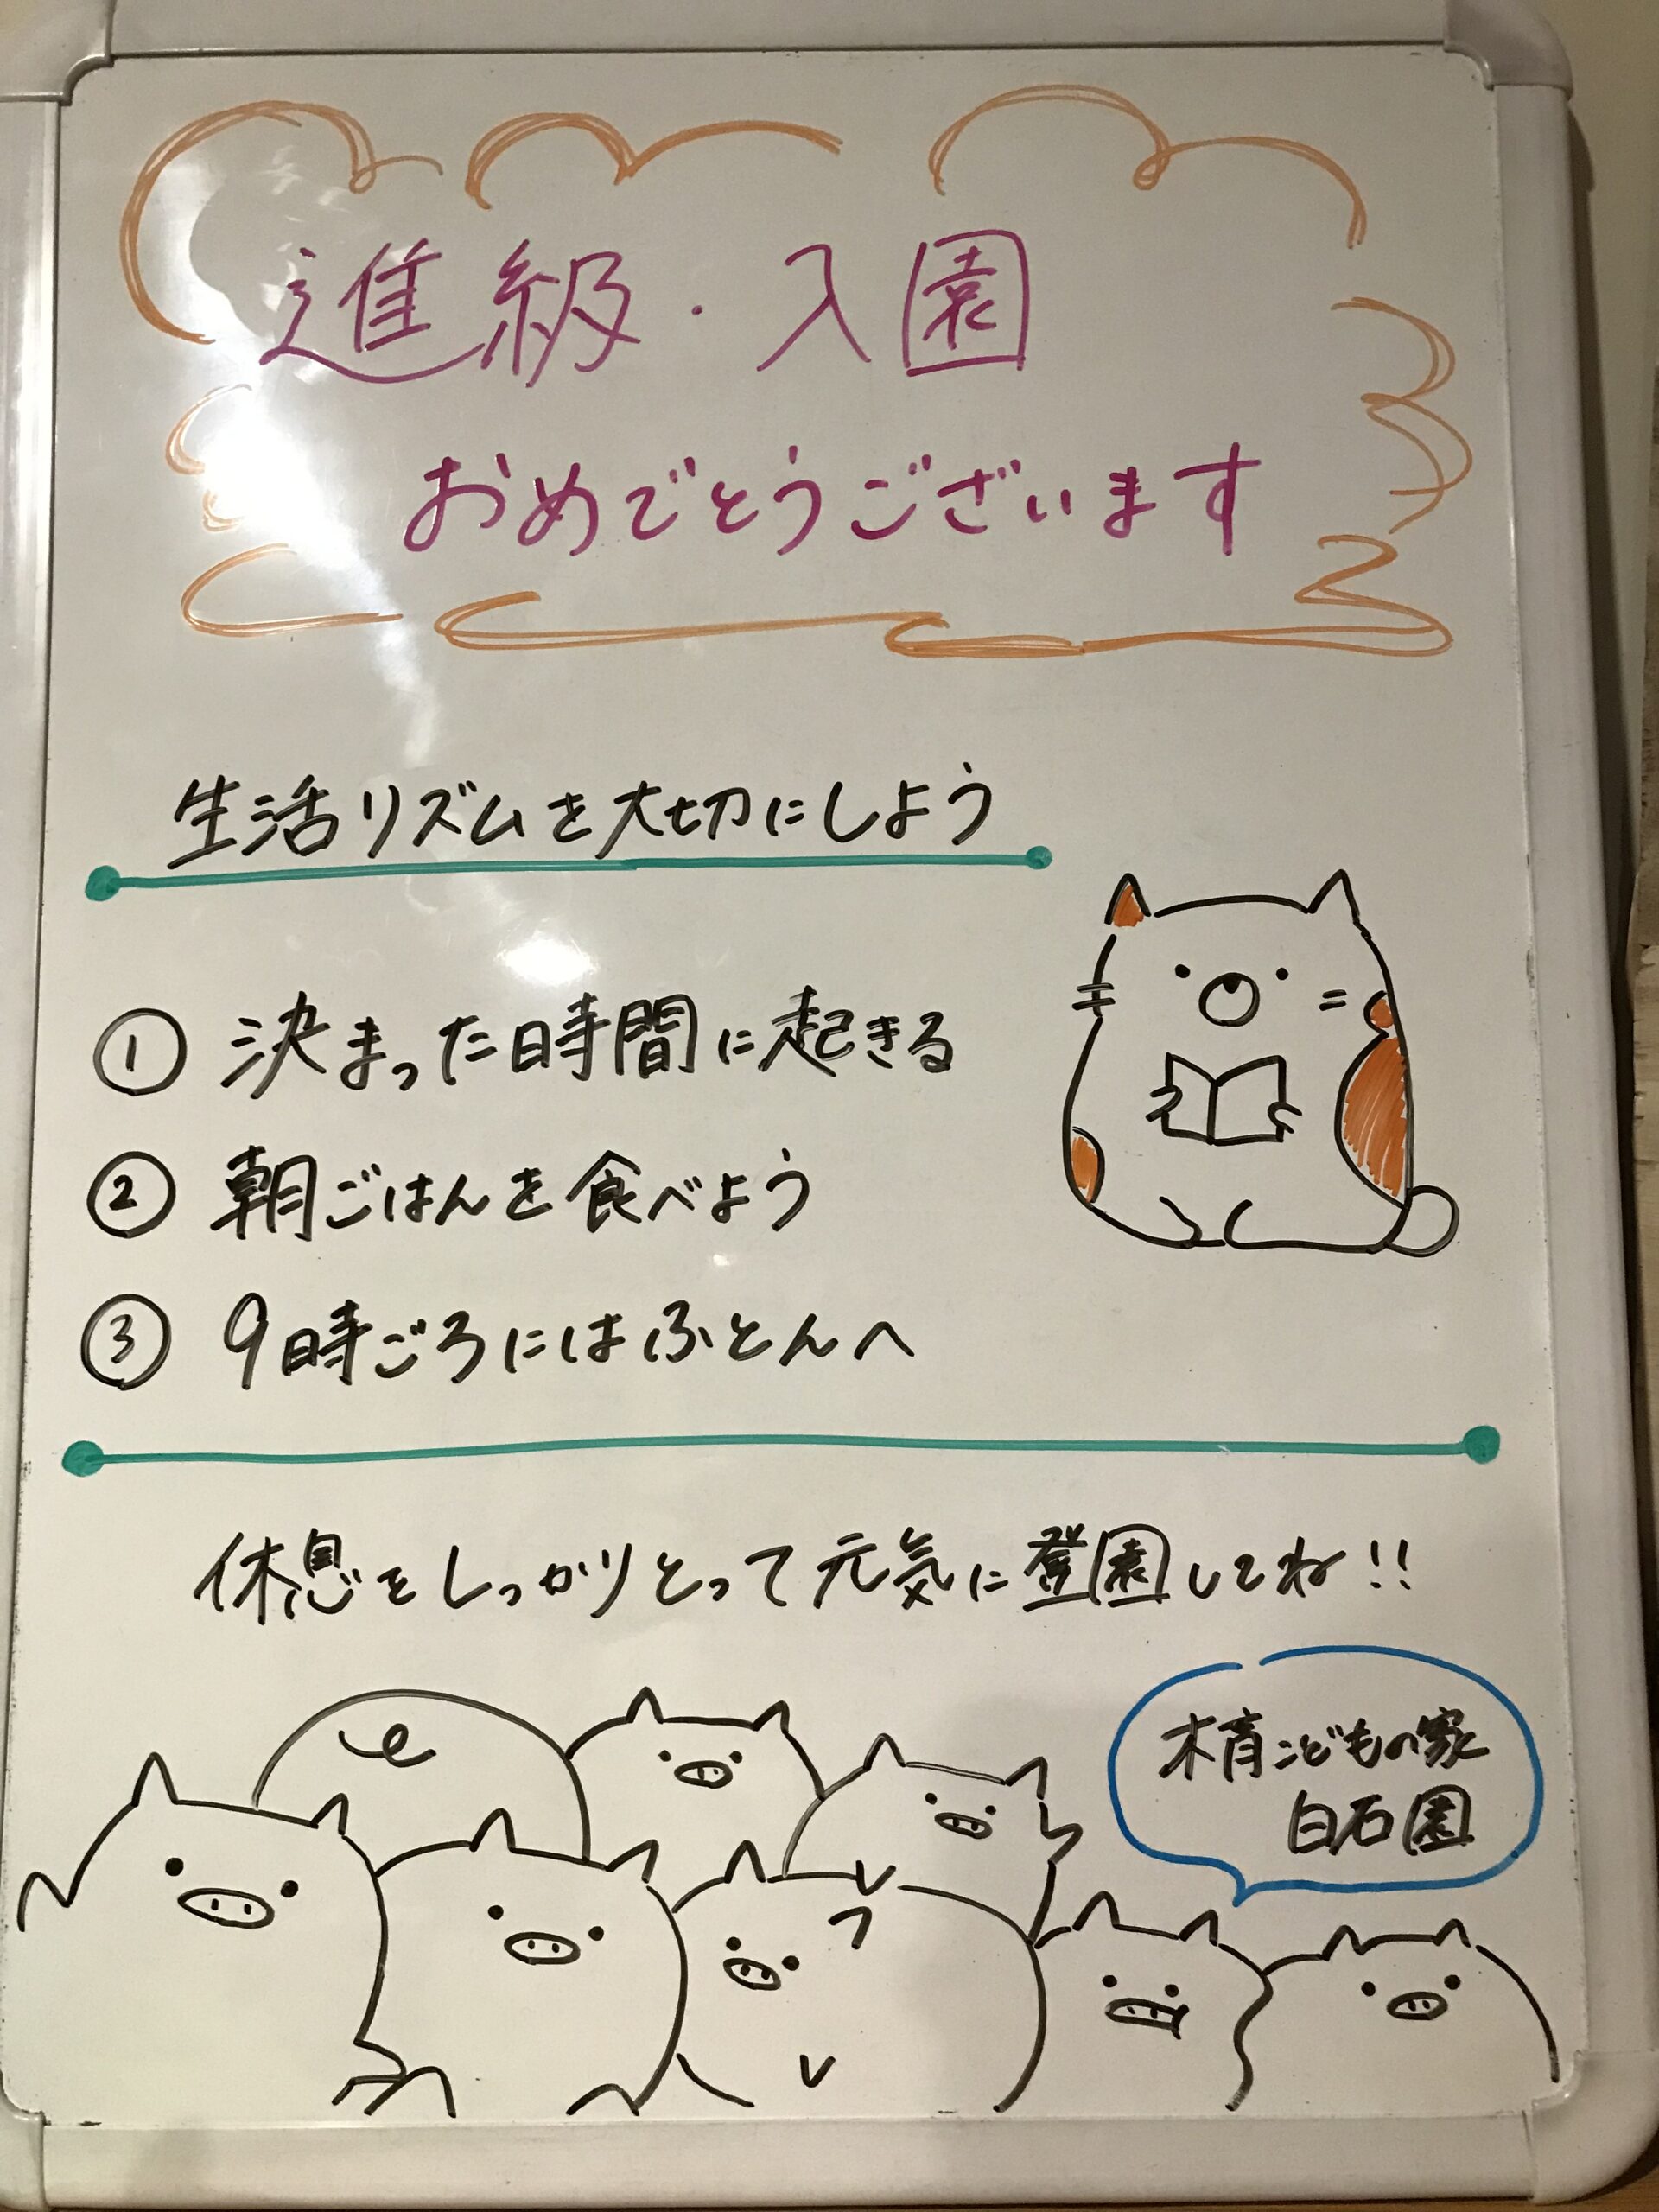 進級・入園
おめでとうございます
生活リズムを大切にしよう
① 決まった時間に起きる
② 朝ごはんを食べよう
③ 9時ごろにはふとんへ
休息をしっかりとって元気に登園してね!!
木育こどもの家
白石園